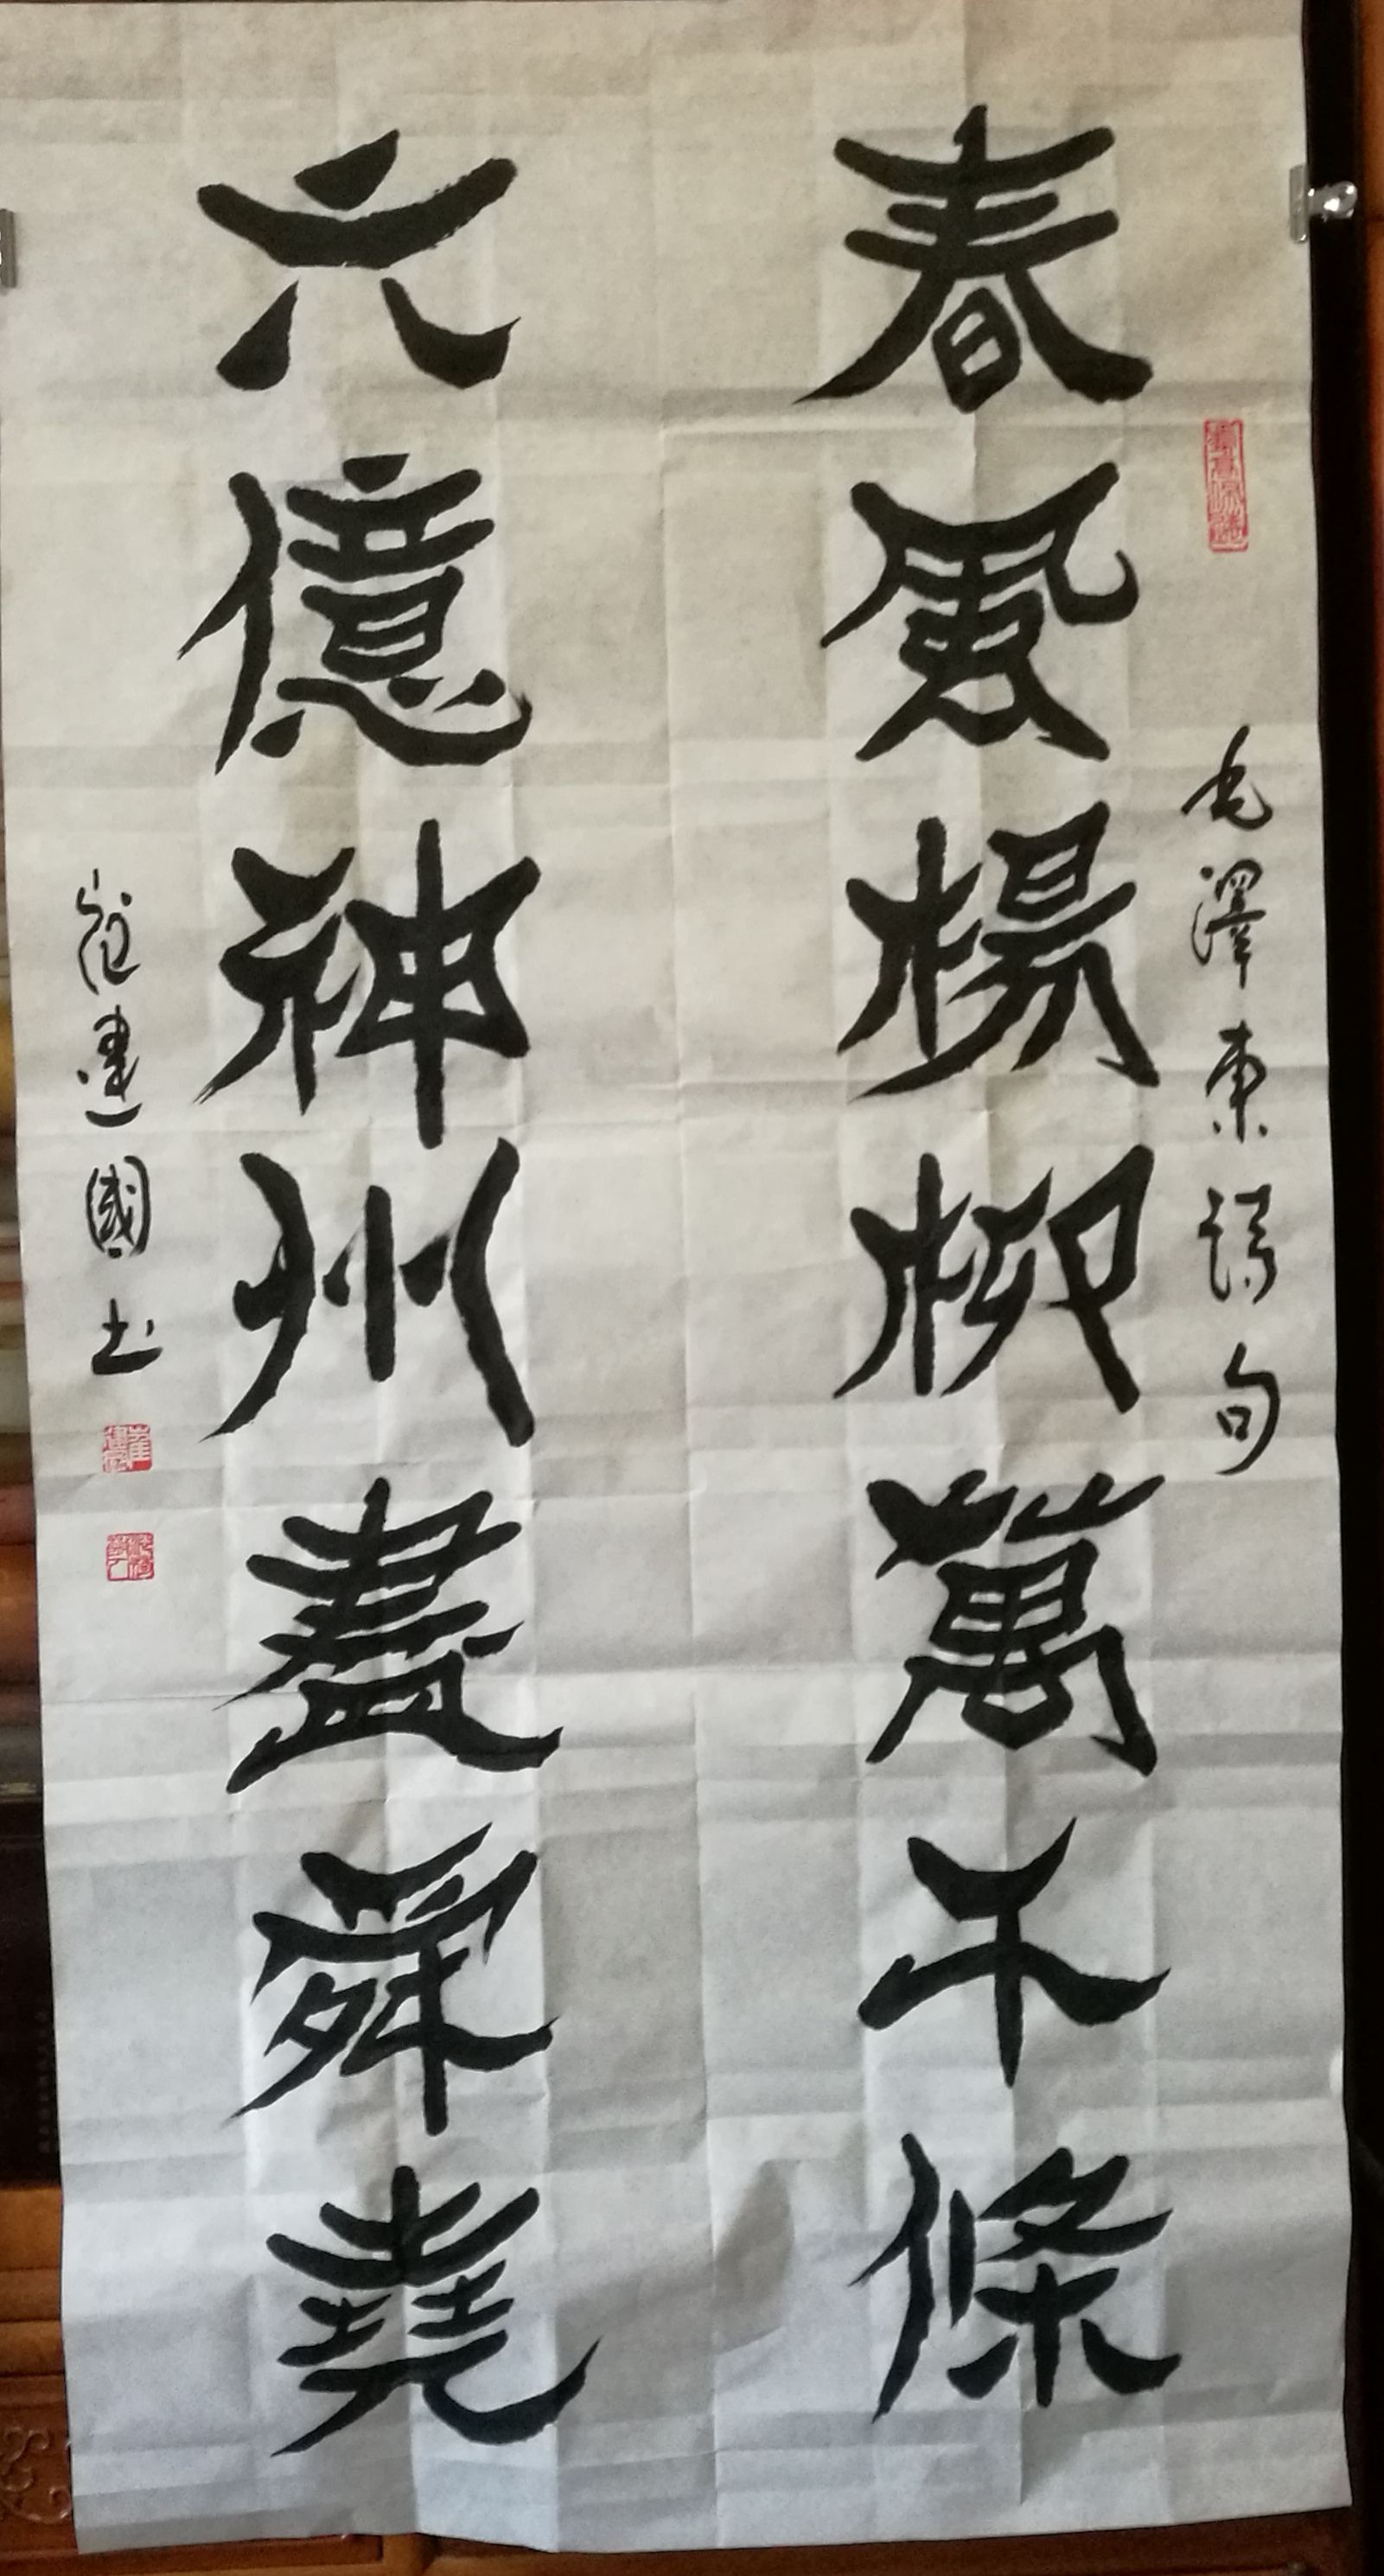 毛澤東詩句
春風楊柳萬千條
六億神州盡舜堯
崔建國书
崔建國